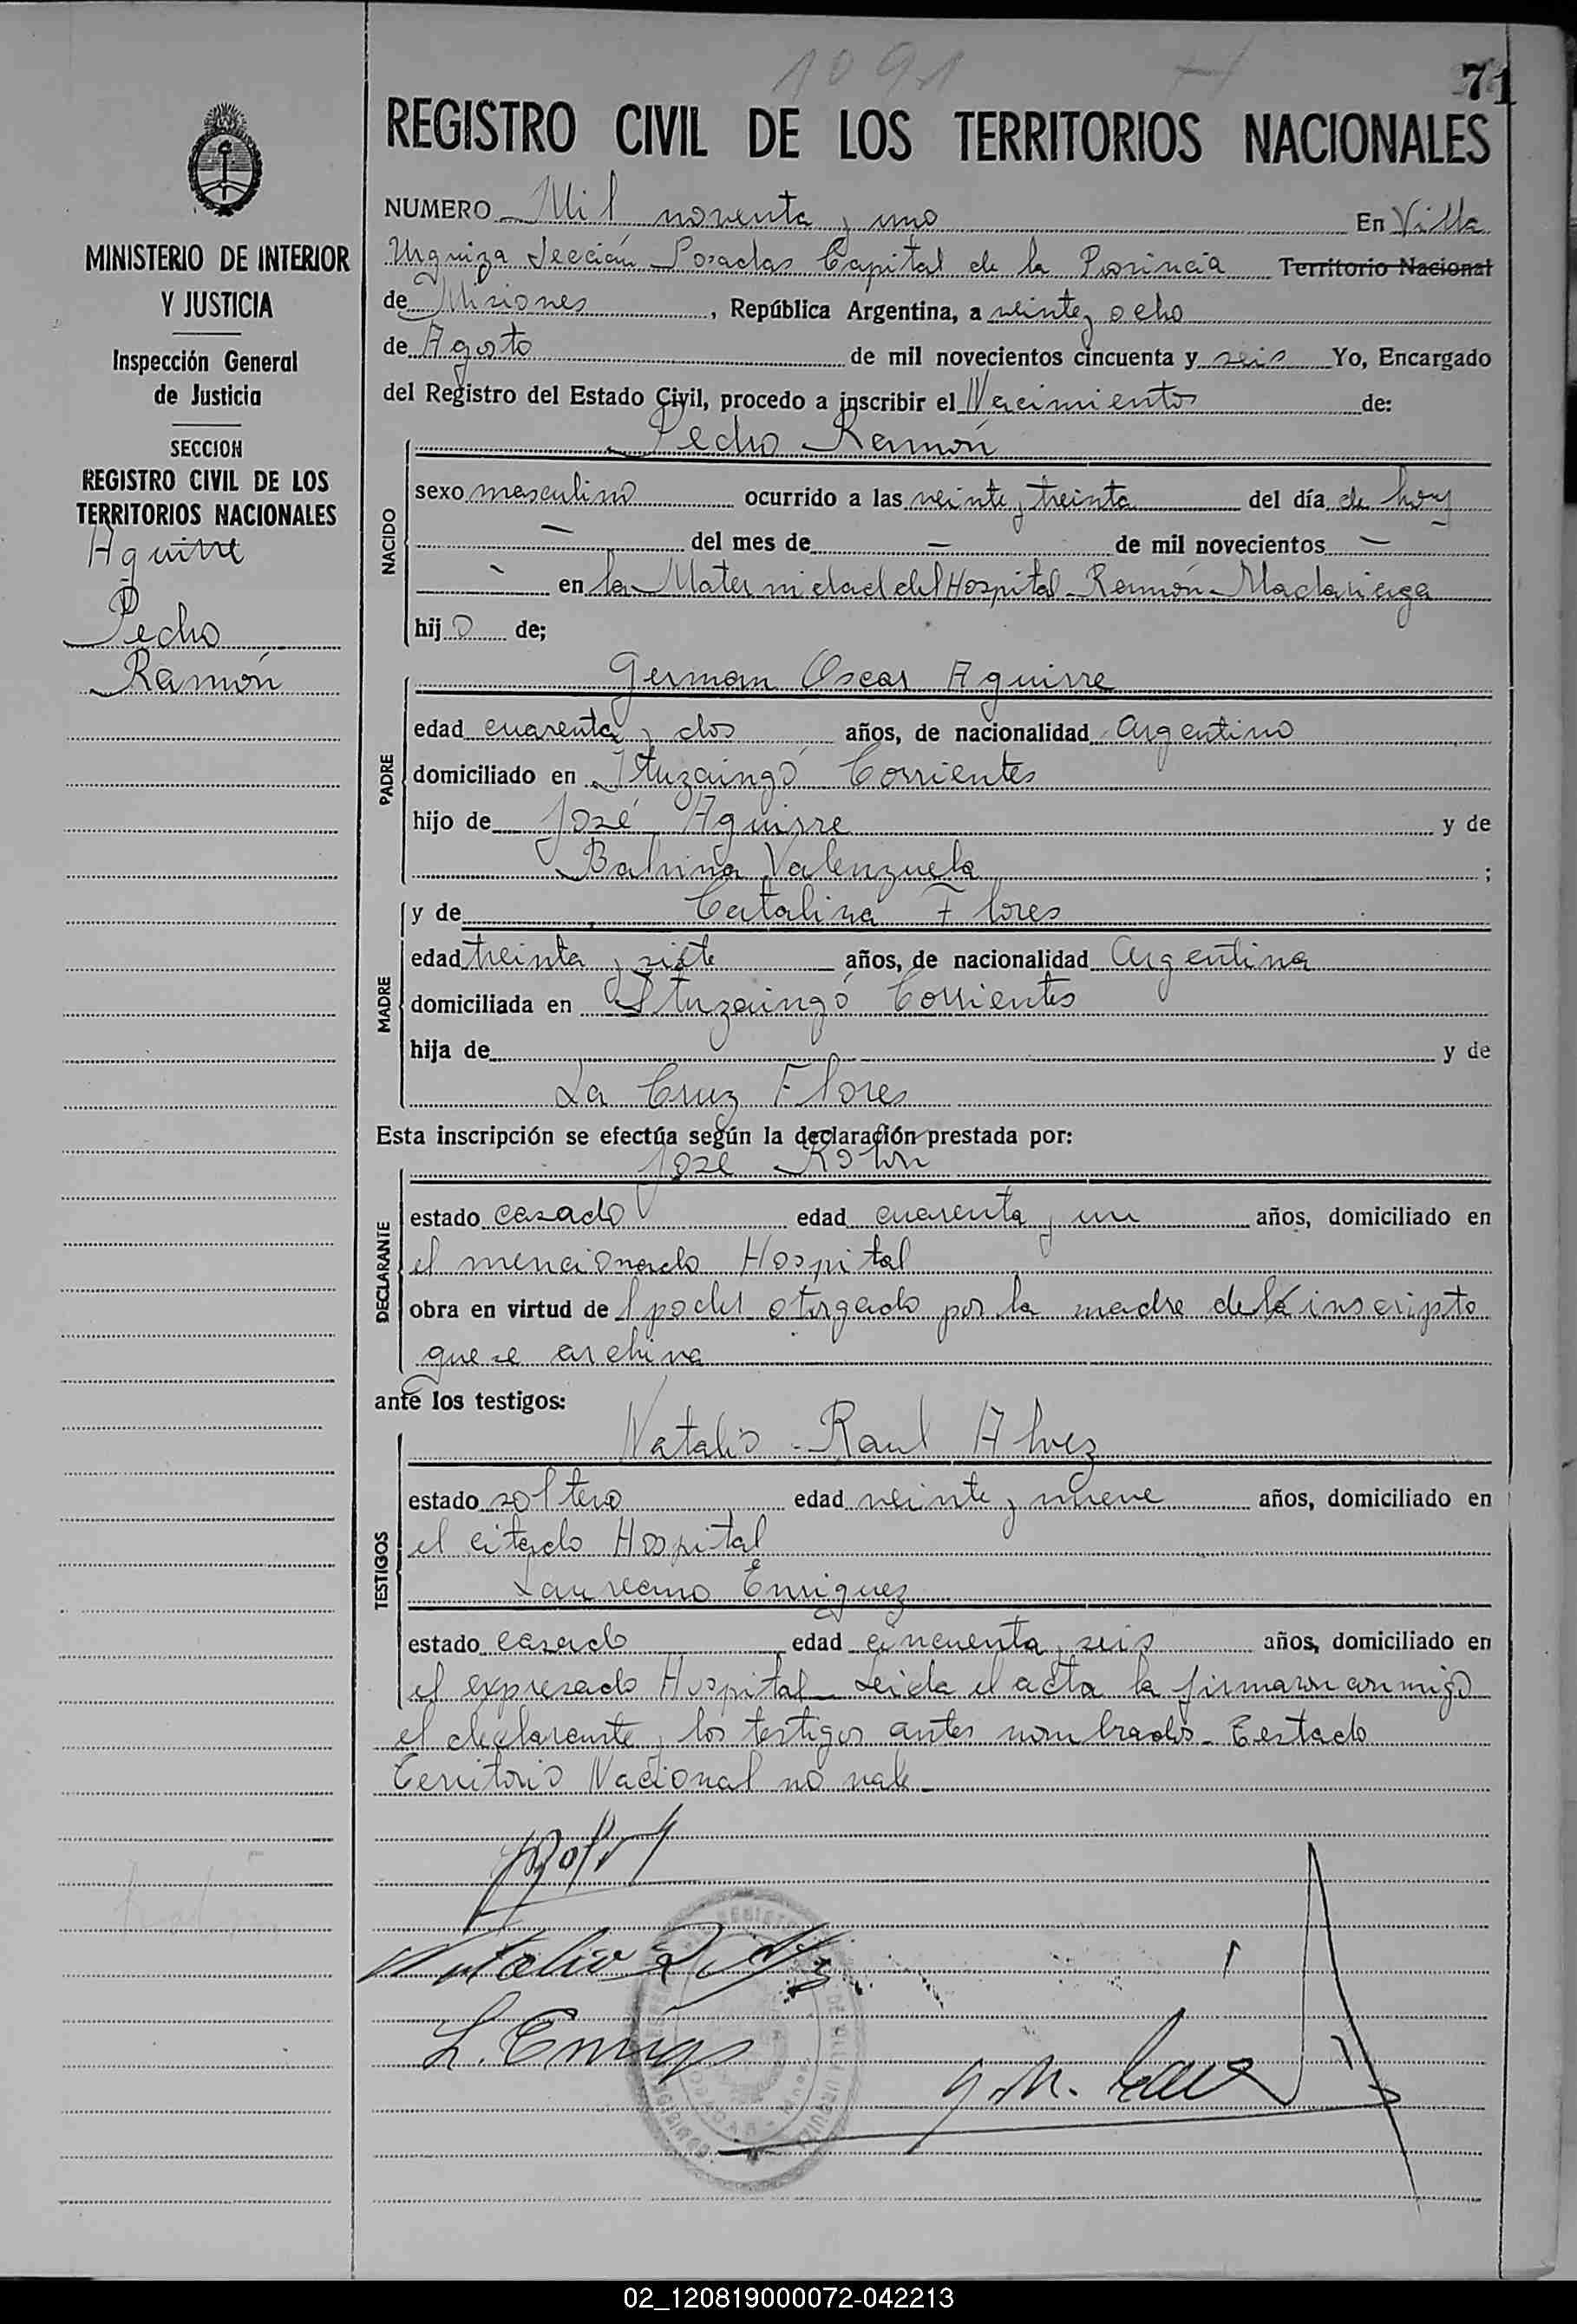 1091
71
REGISTRO CIVIL DE LOS TERRITORIOS NACIONALES
NUMERO Mil noventa y uno En Villa
Urquiza Sección Posadas Capital de la Provincia Territorio Nacional
de Misiones, República Argentina, a veinte y ocho
de Agosto de mil novecientos cincuenta y seis Yo, Encargado
del Registro del Estado Civil, procedo a inscribir el Nacimiento de:
Pedro Ramón
NACIDO
sexo masculino ocurrido a las veinte y treinta del día de hoy
— del mes de — de mil novecientos —
- en la Maternidad del Hospital Ramón Madariaga
hijo de;
German Oscar Aguirre
PADRE
edad cuarenta y dos años, de nacionalidad Argentino
domiciliado en Ituzaingó Corrientes
hijo de José Aguirre y de
Balvina Valenzuela ;
y de Catalina Flores
MADRE
edad treinta y siete años, de nacionalidad Argentina
domiciliada en Ituzaingó Corrientes
hija de y de
La Cruz Flores
Esta inscripción se efectúa según la declaración prestada por:
José
DECLARANTE
estado casado edad cuarenta y un años, domiciliado en
el mencionado Hospital
obra en virtud del poder otorgado por la madre del inscripto
que se archiva
ante los testigos:
Natalio Raul Alvez
TESTIGOS
estado soltero edad veinte y nueve años, domiciliado en
el citado Hospital
Laureano Enriquez
estado casado edad cincuenta y seis años, domiciliado en
el expresado Hospital - Leida el acta la firmaron conmigo
el declarante y los testigos antes nombrados - Testado
Territorio Nacional no vale -
Natalio R Alvez
L. Enriq
MINISTERIO DE INTERIOR
Y JUSTICIA
Inspección General
de Justicia
SECCION
REGISTRO CIVIL DE LOS
TERRITORIOS NACIONALES
Aguirre
Pedro
Ramón
02_120819000072-042213